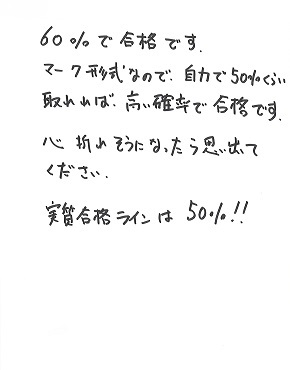 60%で合格です.
マーク形式なので、自力で50%くらい
取れれば、高い確率で合格です.
心 折れそうになったら思い出て
ください.
実質合格ラインは 50%!!